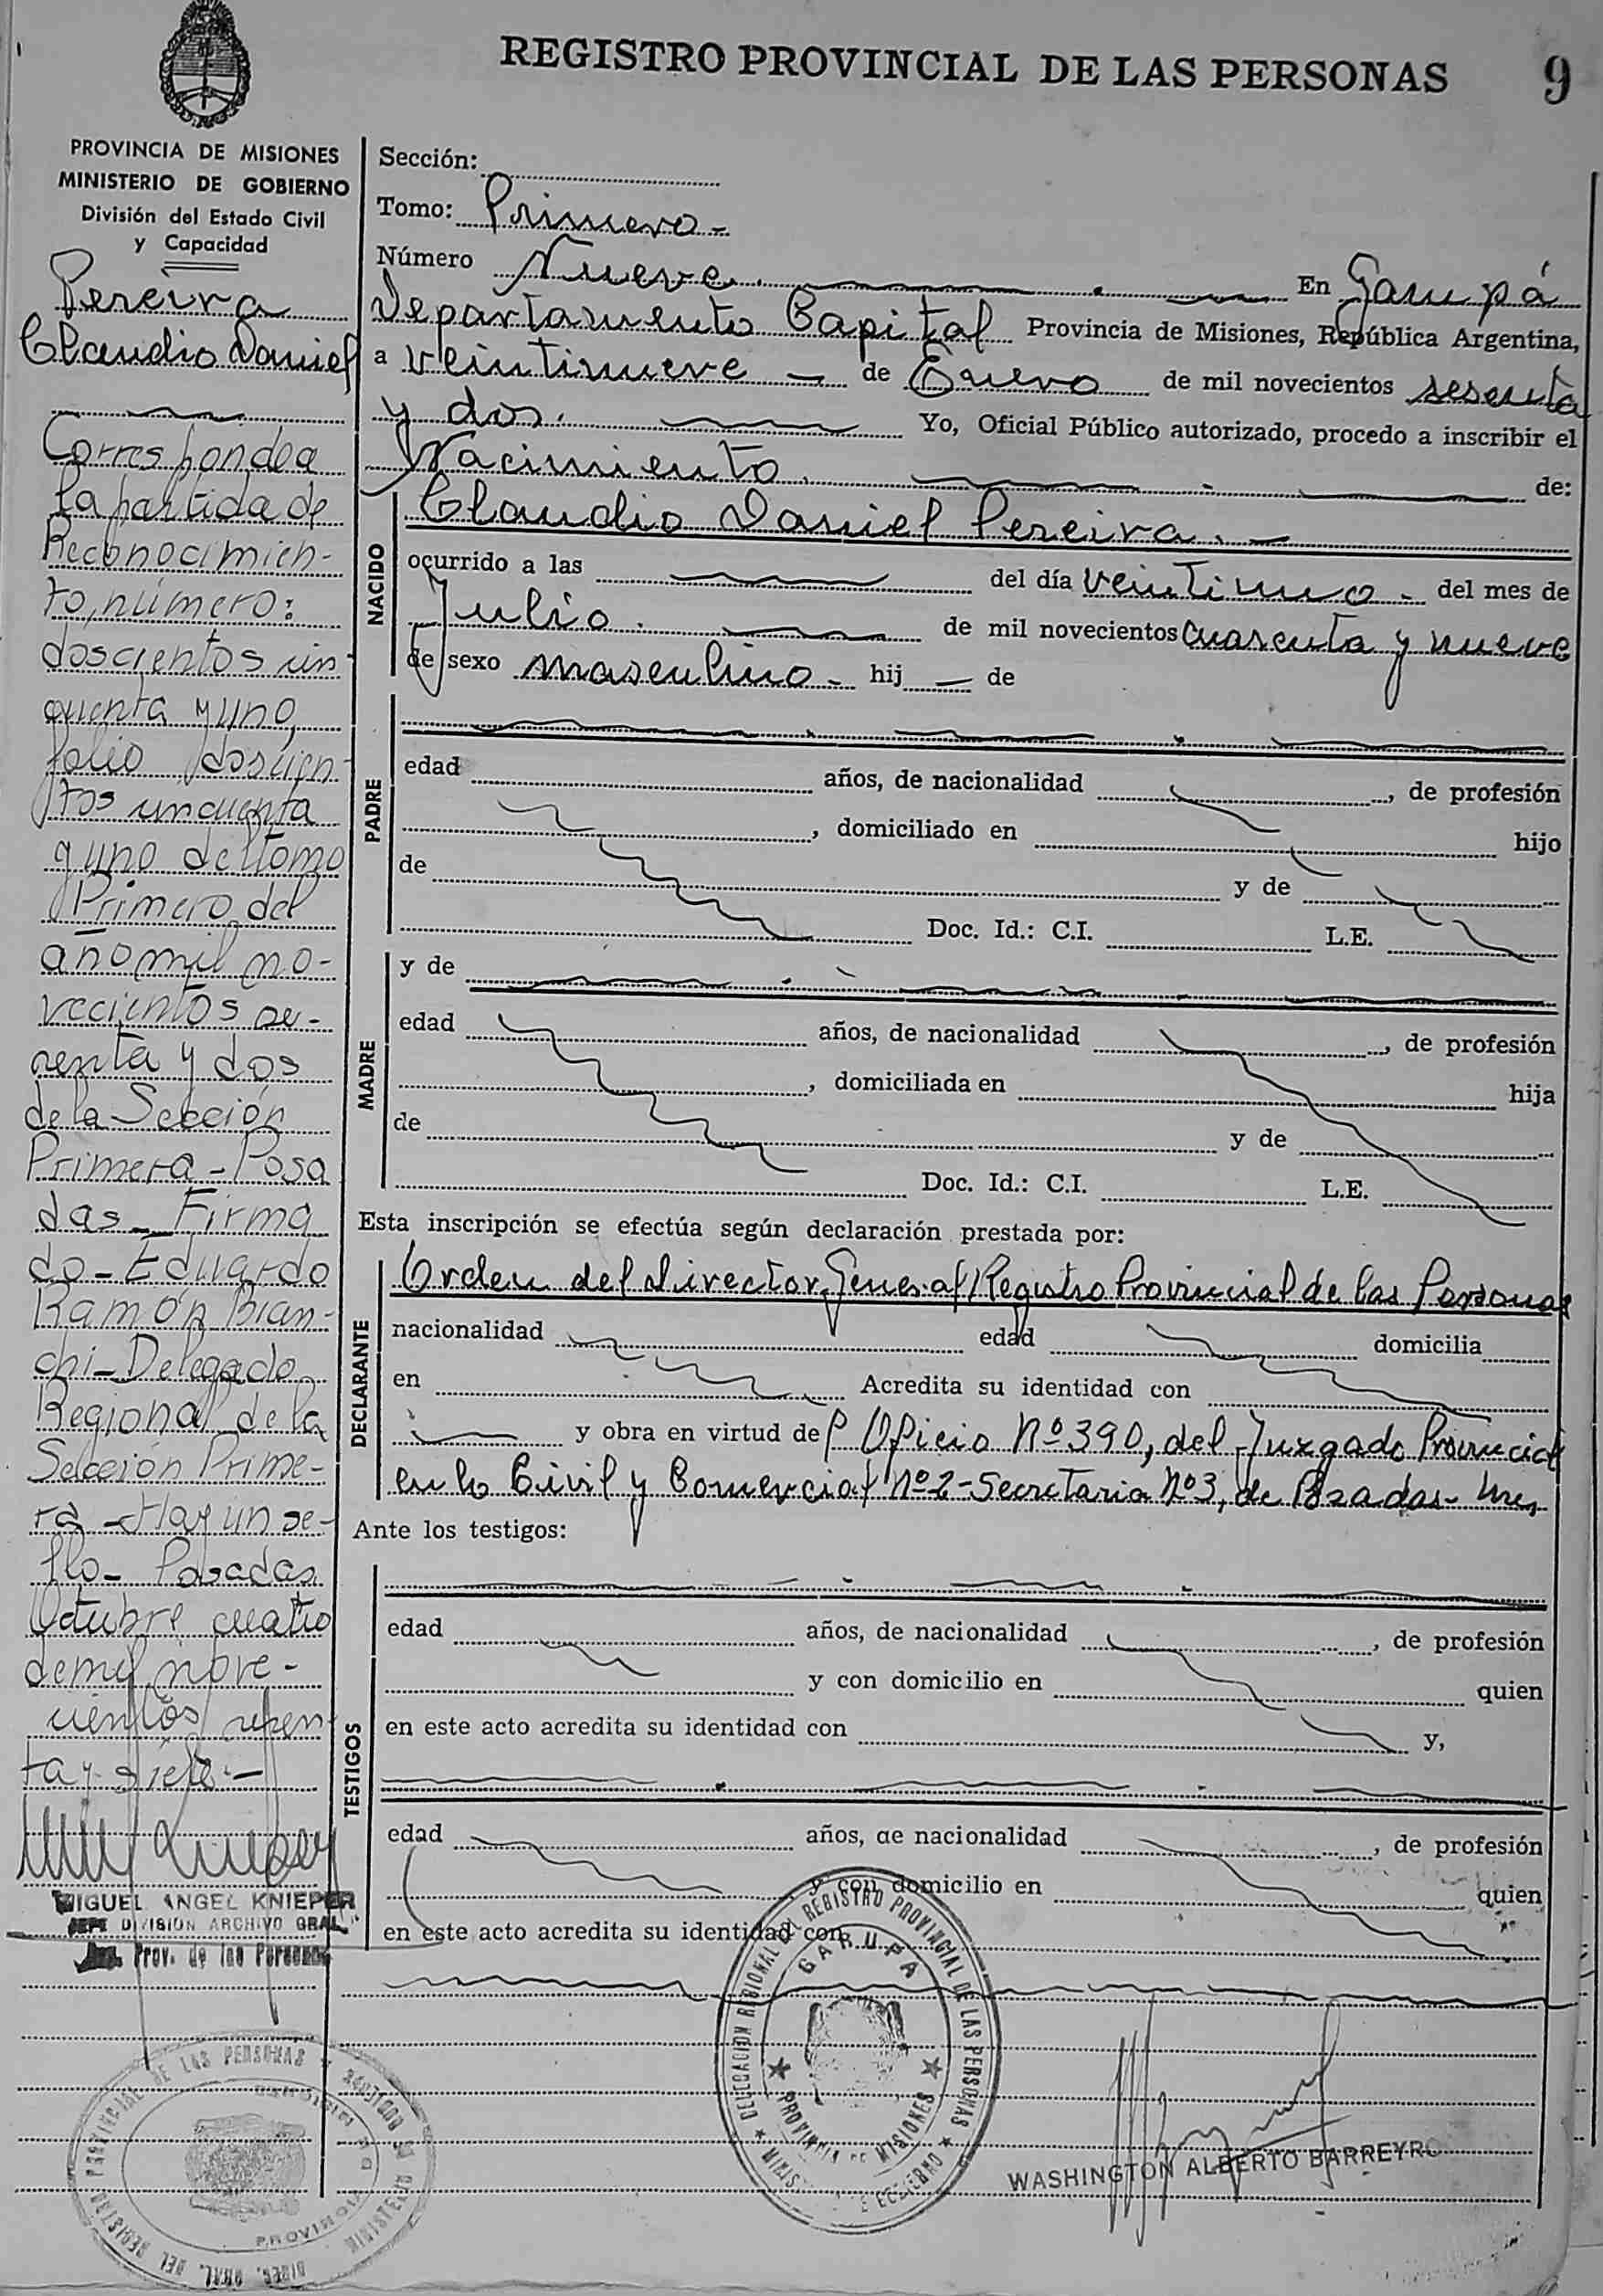 REGISTRO PROVINCIAL DE LAS PERSONAS 9
PROVINCIA DE MISIONES
MINISTERIO DE GOBIERNO
División del Estado Civil
y Capacidad
Pereira
Claudio Daniel
Corresponde a
la partida de
Reconocimien-
to, número:
doscientos cin
cuenta y uno,
folio doscien
tos cincuenta
y uno del tomo
Primero del
año mil no-
vecientos se-
senta y dos
de la Sección
Primera - Posa
das - Firma
do - Eduardo
Ramón Bian-
chi - Delegado
Regional de la
Sección Prime-
ra - Hay un se-
llo - Posadas
Octubre cuatro
de mil nove-
cientos seten
ta y siete.-
MIGUEL ANGEL KNIEPER
JEFE DIVISION ARCHIVO GRAL.
Prov. de las Personas
Sección:
Tomo: Primero -
Número Nueve. En Garupá
Departamento Capital Provincia de Misiones, República Argentina,
a veintinueve - de Enero de mil novecientos sesenta
y dos. Yo, Oficial Público autorizado, procedo a inscribir el
Nacimiento. de:
NACIDO
Claudio Daniel Pereira. -
ocurrido a las del día veintiuno - del mes de
Julio. de mil novecientos cuarenta y nueve
de sexo masculino - hij - de
PADRE
edad años, de nacionalidad , de profesión
, domiciliado en hijo
de y de
Doc. Id.: C.I. L.E.
MADRE
y de
edad años, de nacionalidad , de profesión
, domiciliada en hija
de y de
Doc. Id.: C.I. L.E.
Esta inscripción se efectúa según declaración prestada por:
DECLARANTE
Orden del Director General Registro Provincial de las Personas
nacionalidad edad domicilia
en Acredita su identidad con
y obra en virtud de Oficio Nº 390, del Juzgado Provincial
en lo Civil y Comercial Nº 2 - Secretaria Nº 3, de Posadas -
Ante los testigos:
TESTIGOS
edad años, de nacionalidad , de profesión
y con domicilio en quien
en este acto acredita su identidad con y,
edad años, de nacionalidad , de profesión
y con domicilio en quien
en este acto acredita su identidad con
DELEGACION REGIONAL DEL REGISTRO PROVINCIAL DE LAS PERSONAS
GARUPA
PROVINCIA DE MISIONES
WASHINGTON ALBERTO BARREYRO